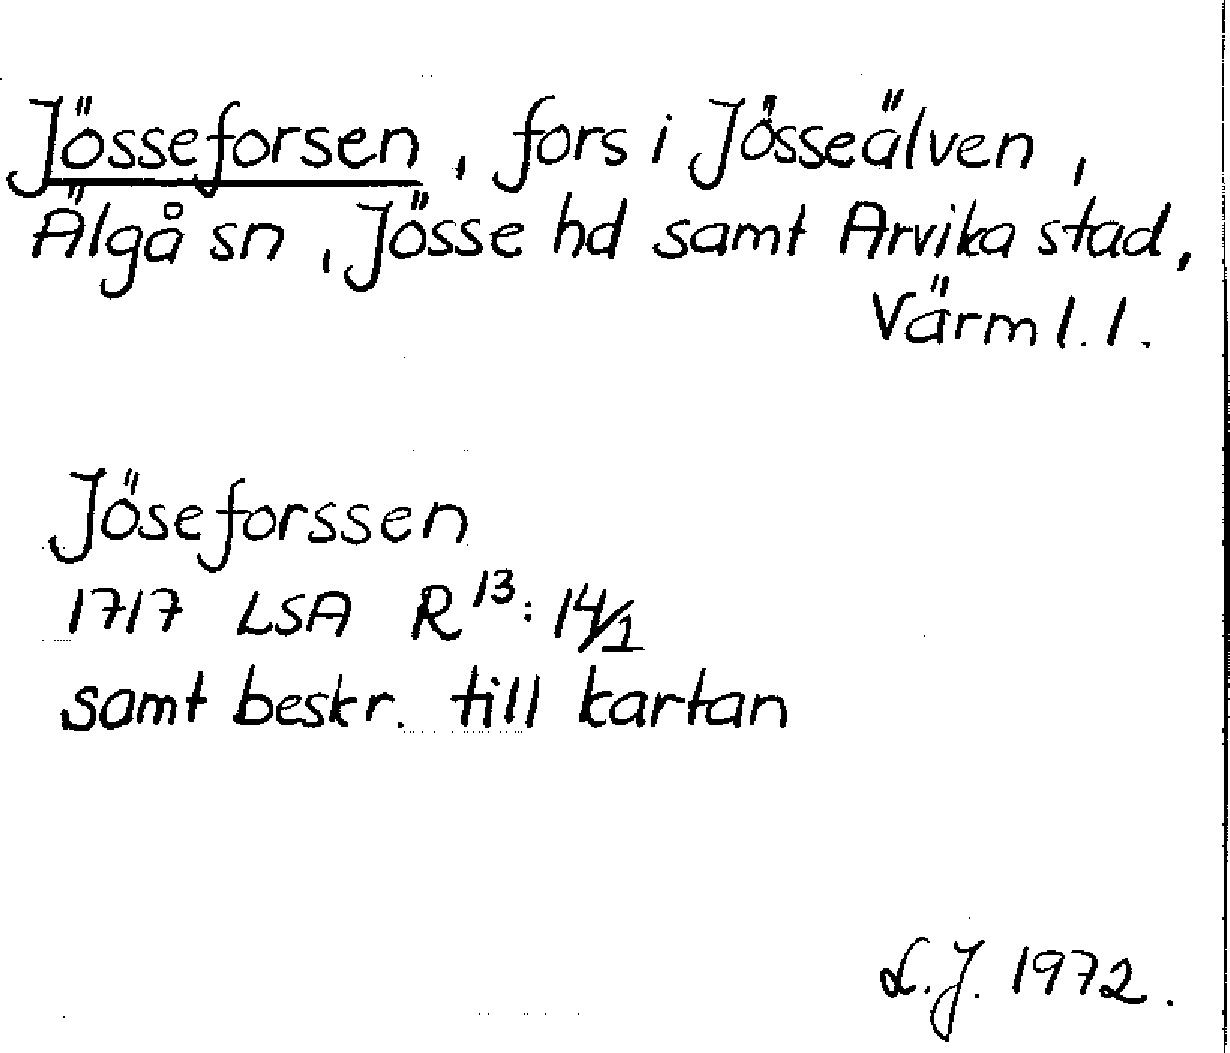 Jösseforsen, fors i Jösseälven,
Älgå sn, Jösse hd samt Arvika stad,
Värml. l.
Jöseforssen
1717 LSA R 13: 14/1
samt beskr. till kartan
L.J. 1972.